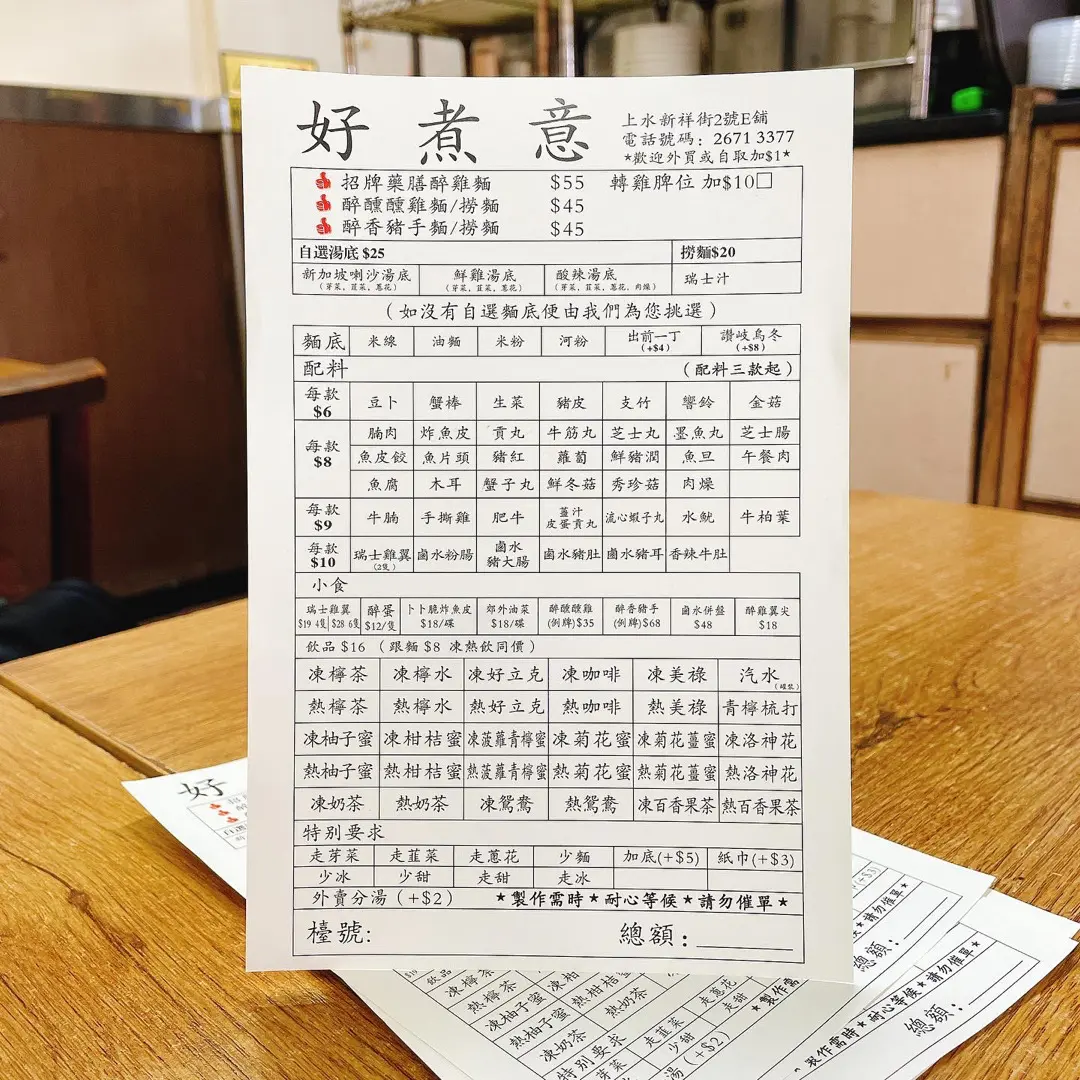 好煮意
上水新祥街2號E舖
電話號碼：2671 3377
*歡迎外買或自取加$1*
招牌藥膳醉雞麵 $55 轉雞脾位 加$10□
醉醺醺雞麵/撈麵 $45
醉香豬手麵/撈麵 $45
自選湯底 $25 撈麵$20
新加坡喇沙湯底 鮮雞湯底 酸辣湯底 瑞士汁
(芽菜, 韮菜, 蔥花) (芽菜, 韮菜, 蔥花) (芽菜, 韮菜, 蔥花, 肉燥)
(如沒有自選麵底便由我們為您挑選)
麵底 米線 油麵 米粉 河粉 出前一丁 讚岐烏冬
(+$4) (+$8)
配料 (配料三款起)
每款 $6 豆卜 蟹棒 生菜 豬皮 支竹 響鈴 金菇
每款 $8 腩肉 炸魚皮 貢丸 牛筋丸 芝士丸 墨魚丸 芝士腸
魚皮餃 魚片頭 豬紅 蘿蔔 鮮豬潤 魚旦 午餐肉
魚腐 木耳 蟹子丸 鮮冬菇 秀珍菇 肉燥
每款 $9 牛腩 手撕雞 肥牛 薑汁皮蛋貢丸 流心蝦子丸 水魷 牛柏葉
每款 $10 瑞士雞翼(2隻) 鹵水粉腸 鹵水豬大腸 鹵水豬肚 鹵水豬耳 香辣牛肚
小食
瑞士雞翼 醉蛋 卜卜脆炸魚皮 郊外油菜 醉醺醺雞 醉香豬手 鹵水併盤 醉雞翼尖
$19 4隻 $28 6隻 $12/隻 $18/碟 $18/碟 (例牌)$35 (例牌)$68 $48 $18
飲品 $16 (跟麵 $8 凍熱飲同價)
凍檸茶 凍檸水 凍好立克 凍咖啡 凍美祿 汽水(罐裝)
熱檸茶 熱檸水 熱好立克 熱咖啡 熱美祿 青檸梳打
凍柚子蜜 凍柑桔蜜 凍菠蘿青檸蜜 凍菊花蜜 凍菊花薑蜜 凍洛神花
熱柚子蜜 熱柑桔蜜 熱菠蘿青檸蜜 熱菊花蜜 熱菊花薑蜜 熱洛神花
凍奶茶 熱奶茶 凍鴛鴦 熱鴛鴦 凍百香果茶 熱百香果茶
特別要求
走芽菜 走韮菜 走蔥花 少麵 加底(+$5) 紙巾(+$3)
少冰 少甜 走甜 走冰
外賣分湯 (+$2) ★製作需時★耐心等候★請勿催單★
檯號: 總額:
好
飲品 $16
凍檸茶
熱檸茶
凍柚子蜜
熱柚子蜜 熱柑桔蜜
凍奶茶 熱奶茶
特別要求
走韮菜 走蔥花
少甜 走甜
(+$2)
★製作需時★耐心等候★請勿催單★
總額:
(+$3)
★請勿催單★
總額: